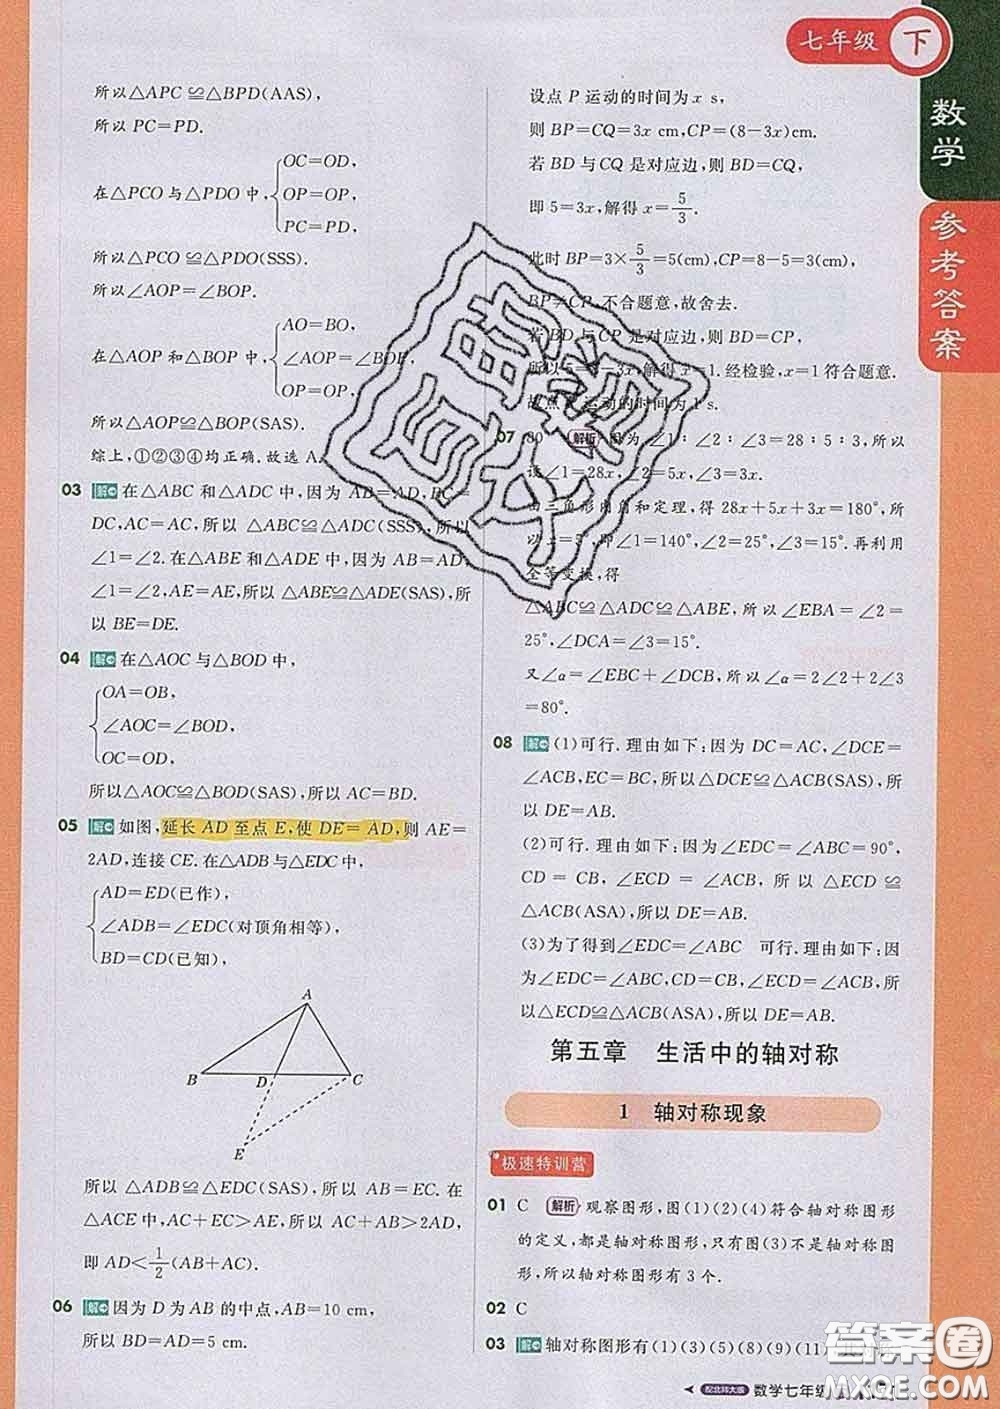 七年级 下
数学
参考答案
所以△APC≌△BPD(AAS),
所以 PC=PD.
OC=OD,
在△PCO与△PDO中, OP=OP,
PC=PD,
所以△PCO≌△PDO(SSS).
所以∠AOP=∠BOP.
AO=BO,
在△AOP和△BOP中, ∠AOP=∠BOP,
OP=OP,
所以△AOP≌△BOP(SAS).
综上,①②③④均正确.故选A.
03 解 在△ABC和△ADC中,因为AB=AD,BC=
DC,AC=AC,所以△ABC≌△ADC(SSS),所以
∠1=∠2.在△ABE和△ADE中,因为AB=AD,
∠1=∠2,AE=AE,所以△ABE≌△ADE(SAS),所
以BE=DE.
04 解 在△AOC与△BOD中,
OA=OB,
∠AOC=∠BOD,
OC=OD,
所以△AOC≌△BOD(SAS),所以AC=BD.
05 解 如图,延长AD至点E,使DE=AD,则AE=
2AD,连接CE.在△ADB与△EDC中,
AD=ED(已作),
∠ADB=∠EDC(对顶角相等),
BD=CD(已知),
A
B D C
E
所以△ADB≌△EDC(SAS),所以AB=EC.在
△ACE中,AC+EC>AE,所以AC+AB>2AD,
即AD<1/2(AB+AC).
06 解 因为D为AB的中点,AB=10 cm,
所以BD=AD=5 cm.
设点P运动的时间为x s,
则BP=CQ=3x cm,CP=(8-3x)cm.
若BD与CQ是对应边,则BD=CQ,
即5=3x,解得x=5/3.
此时BP=3×5/3=5(cm),CP=8-5=3(cm),
BP≠CP,不合题意,故舍去.
若BD与CP是对应边,则BD=CP,
所以5=8-3x,解得x=1.经检验,x=1符合题意.
故点P运动的时间为1 s.
07 80° 解析 因为∠1∶∠2∶∠3=28∶5∶3,所以
设∠1=28x,∠2=5x,∠3=3x.
由三角形内角和定理,得28x+5x+3x=180°,所
以x=5°,即∠1=140°,∠2=25°,∠3=15°.再利用
全等变换,得
△ABC≌△ADC≌△ABE,所以∠EBA=∠2=
25°,∠DCA=∠3=15°.
又∠α=∠EBC+∠DCB,所以∠α=2∠2+2∠3
=80°.
08 解 (1)可行.理由如下:因为DC=AC,∠DCE=
∠ACB,EC=BC,所以△DCE≌△ACB(SAS),所
以DE=AB.
(2)可行.理由如下:因为∠EDC=∠ABC=90°,
CD=CB,∠ECD=∠ACB,所以△ECD≌
△ACB(ASA),所以DE=AB.
(3)为了得到∠EDC=∠ABC 可行.理由如下:因
为∠EDC=∠ABC,CD=CB,∠ECD=∠ACB,所
以△EDC≌△ABC(ASA),所以DE=AB.
第五章 生活中的轴对称
1 轴对称现象
极速特训营
01 C 解析 观察图形,图(1)(2)(4)符合轴对称图形
的定义,都是轴对称图形,只有图(3)不是轴对称图
形,所以轴对称图形有3个.
02 C
03 解 轴对称图形有(1)(3)(5)(8)(9)(11)
答案圈
MXQE.COM
配北师大版 数学七年级